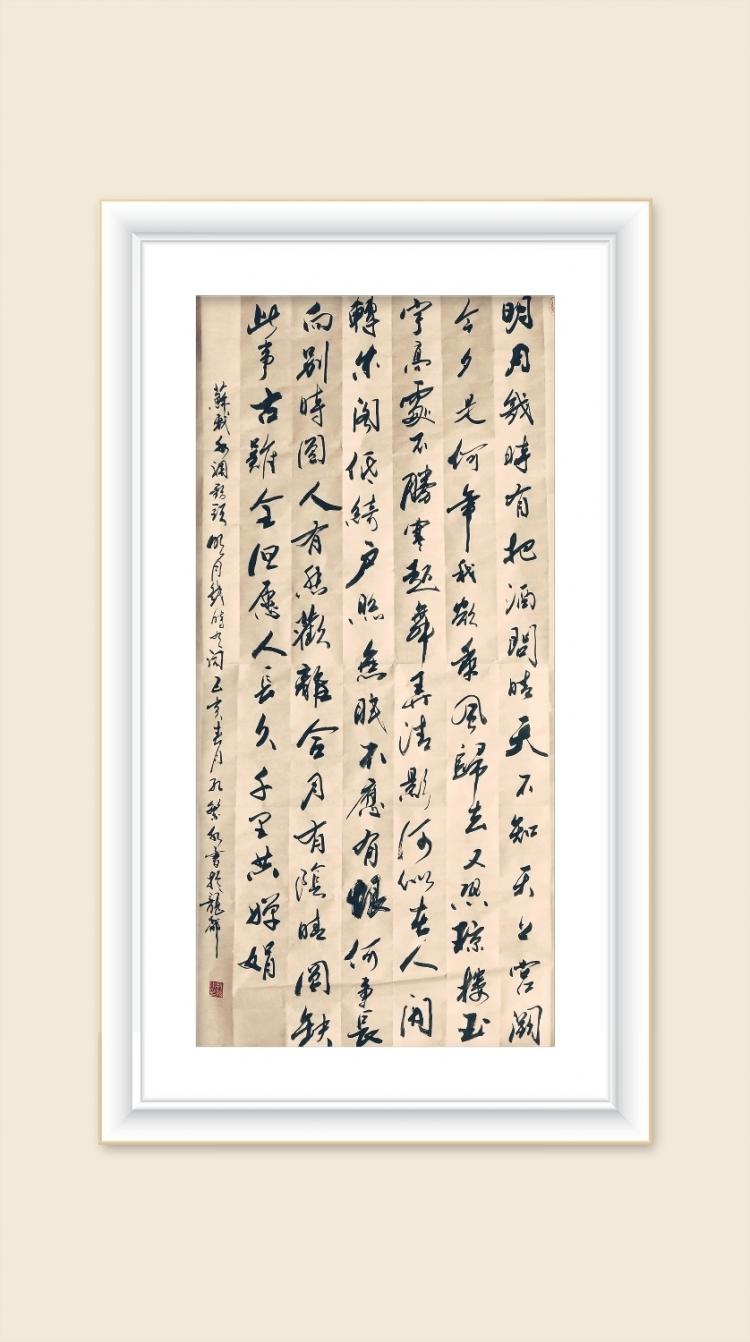 明月幾時有把酒問晴天不知天上宮闕
今夕是何年我欲乘風歸去又恐琼樓玉
宇高處不勝寒起舞弄清影何似在人間
轉朱閣低綺戶照無眠不應有恨何事長
向別時圓人有悲歡離合月有陰晴圓缺
此事古難全但愿人長久千里共嬋娟
蘇軾水調歌頭明月幾時有己亥春月孔繁書於龍都